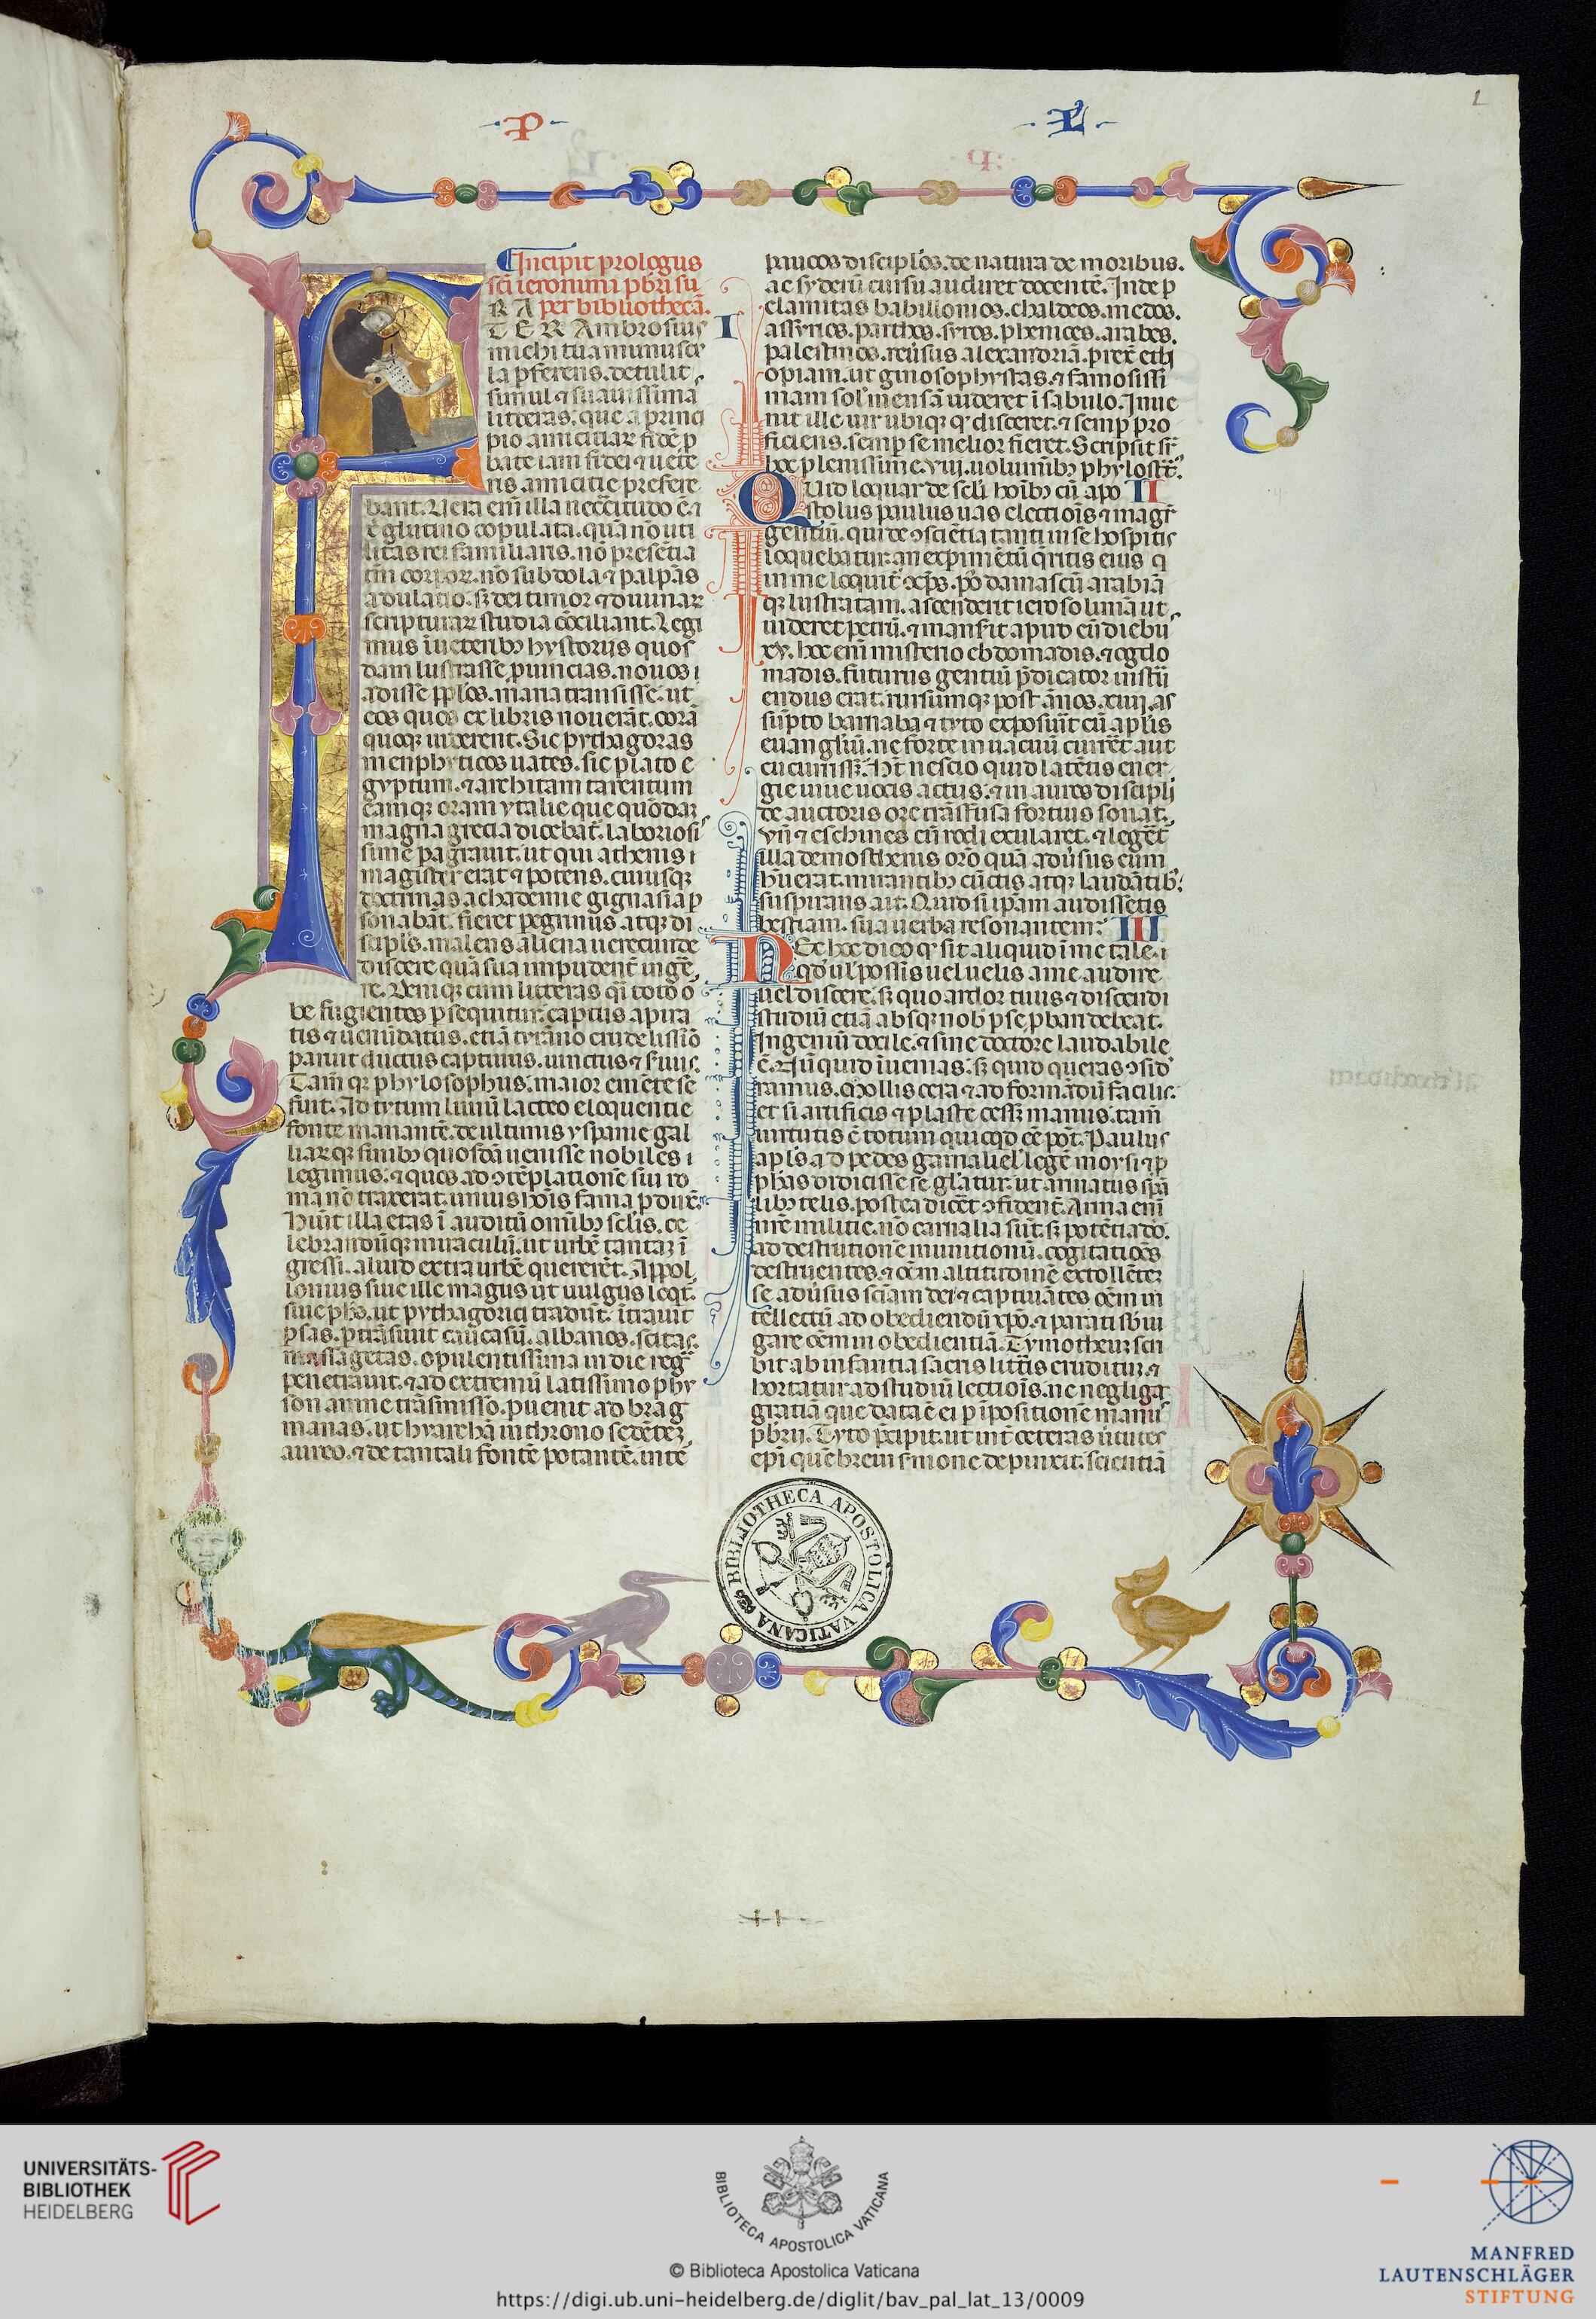 ·P· ·L·
1
Incipit prologus
sc̄i ieronimi pb̄ri su
per bibliothecā.
F R A
T E R Ambrosius
michi tua munuscu
la p̄ferens. detulit
simul ⁊ suauissima
litteras. que a princi
pio amicitiaꝝ fidē ꝓ
bate iam fidei ⁊ uete
ris amicitie prefere
bant. Vera em̄ illa neccitudo ē. ⁊
x̄ glutino copulata. quā nō uti
litas rei familiaris. nō presētia
tm̄ corpoꝝ. nō subdola ⁊ palpās
adulatio. sꝫ dei timor ⁊ diuinaꝝ
scripturaꝝ studia cōciliant. Legi
mus ī ueteribꝫ hystoriis quos
dam lustrasse ꝓuincias. nouos
adisse pplos. maria transisse. ut
eos quos ex libris nouerāt. corā
quoqꝫ uiderent. Sic pythagoras
menphyticos uates. sic plato e
gyptum. ⁊ architam tarentum
eamqꝫ oram ytalie que quōdaꝫ
magna grecia dicebat̄. laboriosi
sime pagrauit. ut qui athenis
magister erat ⁊ potens. cuiusqꝫ
doctrinas achademie gignasia p̄
sonabāt. fieret pegrinus atqꝫ di
scipl̄s. malens aliena uerecunde
discere quā sua impudent̄ inge
re. Deniqꝫ cum litteras q̄i toto o
be fugientes ꝑsequitur. captus a pira
tis ⁊ uenūdatus. etiā tyrāno crudelissīo
paruit ductus captiuus. uinctus ⁊ seruus.
Tam̄ qꝫ phylosophus. maior emēte se
fuit. Ad tytum liuiū lacteo eloquentie
fonte manantē. de ultimis yspanie gal
liaꝝqꝫ finibꝫ quosdā uenisse nobiles
legimus. ⁊ quos ad ↄtēplationē sui ro
ma nō traxerat. unius hoīs fama ꝑduxit.
Habuit illa etas ī auditū omībꝫ sclīs. ce
lebrandūqꝫ miraculū. ut urbē tantaꝫ ī
gressi. aliud extra urbē quererēt. Appol
lonius siue ille magus ut uulgus loqt̄.
siue phs. ut pythagorici tradūt. ītrauit
ꝑsas. ꝑtrāsiuit caucasū. albanos. scitas.
massagetas. opulentissima indie regna
penetrauit. ⁊ ad extremū latissimo phy
son amne trāsmisso. ꝑuenit ad brag
manas. ut hyarchā in throno sedēteꝫ
aureo. ⁊ de tantali fonte potantē. inte
paucos discipl̄os. de natura de moribus.
ac syderū cursu audiret docentē. Inde ꝑ
elamitas babillonios. chaldeos. medos.
I
assyrios. parthos. syros. phenices. arabes.
palestinos. reūsus alexandriā. ꝑrex̄ ethi
opiam. ut ginosophystas. ⁊ famosissi
mam sol̄ mensā uideret ī sabulo. Inue
nit ille uir ubiqꝫ qꝫ disceret. ⁊ semꝑ pro
ficiens. semꝑ se melior fieret. Scripsit sr̄
hoc plenissime. viij. uoluminibꝫ phylostr̄.
II
Quid loquar de scl̄i hoībꝫ cū apo
stolus paulus uas electiōis ⁊ magr̄
gentiū. qui de ↄsciētia tanti in se hospitis
loquebatur. an expimētū q̄ritis eius q̄
in me loquit̄ xp̄s. Pꝰ damascū arabiā
qꝫ lustratam. ascendent ierosolimā ut
uideret petrū. ⁊ mansit apud eū diebus
xv. hoc enī misterio ebdomadis. ⁊ ogdo
madis. futurus gentiū p̄dicator instru
endus erat. rursumqꝫ post ānos. xiiij. as
sūpto barnaba ⁊ tyto exposuit cū ap̄lis
euangliū. ne forte in uacuū curret aut
cucurrisset. Ht̄ nescio quid latētis ener
gie uiue uocis actus. ⁊ in aures discipli
de auctoris ore trāsfusa fortius sonat.
Vn̄ ⁊ eschines cū rodi exularet. ⁊ leget̄
illa demosthenis orō quā aduersus eum
hūerat. mirantibꝫ cūctis atqꝫ laudātibꝫ.
suspirans ait. Quid si ip̄am audissetis
bestiam. sua uerba resonantem.
III
Nec hoc dico qꝫ sit aliquid ī me tale.
qd̄ ul̄ possis uel uelis a me audire
uel discere. sꝫ quo ardor tuus ⁊ discendi
studiū etiā absqꝫ nobꝫ ꝑ se ꝓbari debeat.
Ingeniū docile. ⁊ sine doctore laudabile
ē. Nū quid īuenias. sꝫ quid queras ↄsid
ramus. Mollis cera ⁊ ad formādū facilis.
et si artificis ⁊ plaste cessꝫ manus. tam̄
uirtutis ē totum quicqd̄ eē pōt. Paulus
apls ad pedes gamaliel̄ legē moysi ⁊ ꝓ
phas didicisse se gl̄atur. ut armatus sp̄a
libꝫ telis. postea dicēt ↄfident̄. Arma em̄
nr̄e militie. nō carnalia sūt. sꝫ potētia do.
ad destructionē munitionū. cogitatiōes
destruentes. ⁊ oēm altitudinē extollēteꝫ
se aduersus sciam dei. ⁊ captiuātes oēm in
tellectū ad obediendū xpō. ⁊ parati sbiu
gare oēm inobedientiā. Tymotheus scri
bit ab infantia sacris litt̄is eruditur. ⁊
hortatur ad studiū lectiōis. ne negligat
gratiā que data ē ei ꝑ īpositionē manuū
pb̄rii. Tyto p̄cipit. ut int̄ ceteras ūtutes
ep̄i quē breui s̄mone depinxit. scientiā
BIBLIOTHECA APOSTOLICA VATICANA
UNIVERSITÄTS-
BIBLIOTHEK
HEIDELBERG
BIBLIOTECA APOSTOLICA VATICANA
© Biblioteca Apostolica Vaticana
https://digi.ub.uni-heidelberg.de/diglit/bav_pal_lat_13/0009
MANFRED
LAUTENSCHLÄGER
STIFTUNG